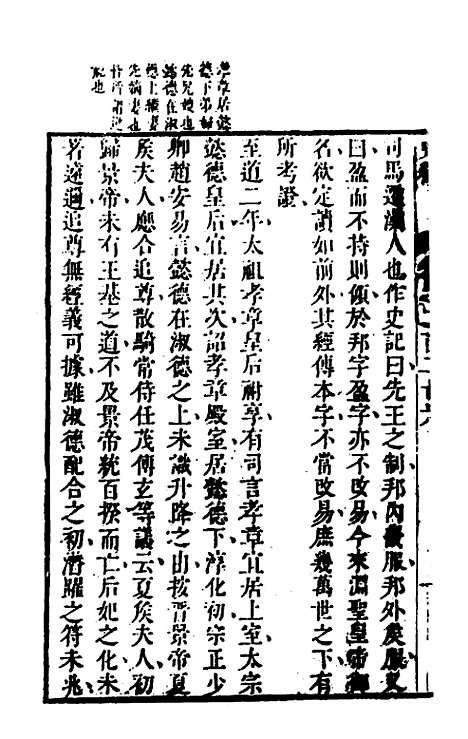 孝章居懿
德下弟婦
先兄嫂也
懿德在淑
德上續妻
先嫡妻也
般也
司馬遷漢人也作史記曰先王之制邦內甸服邦外侯服又
曰盈而不持則傾於邦字盈字亦不改易今來淵聖皇帝御
名欲定讀如前外其經傳本字不當改易庶幾萬世之下有
所考證
至道二年太祖孝章皇后祔享有司言孝章宜居上室太宗
懿德皇后宜居其次詔孝章殿室居懿德下淳化初宗正少
卿趙安易言懿德在淑德之上未識升降之由按晉景帝夏
侯夫人應合追尊散騎常侍任茂傅玄等議云夏侯夫人初
歸景帝未有王基之道不及景帝統百揆而亡后妃之化未
著遠邇追尊無經義可據雖淑德配合之初潛躍之符未兆